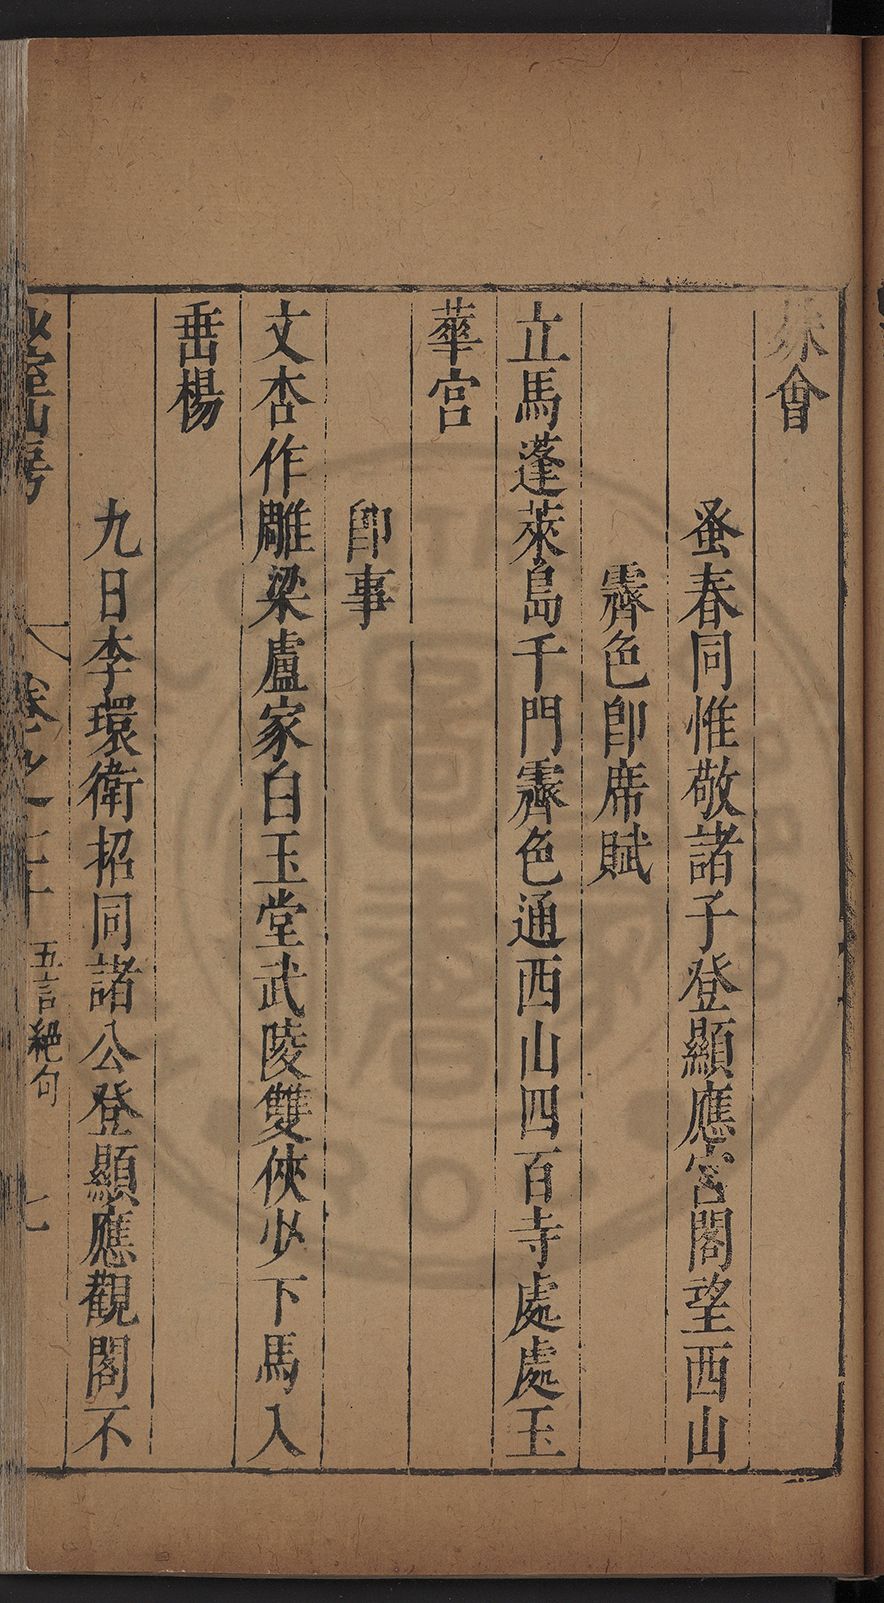 會
蚤春同惟敬諸子登顯應宮閣望西山
霽色卽席賦
立馬蓬萊島千門霽色通西山四百寺處處玉
華宮
卽事
文杏作雕梁盧家白玉堂武陵雙俠少下馬入
垂楊
九日李環衛招同諸公登顯應觀閣不
室山房
卷之七十
五言絕句
七